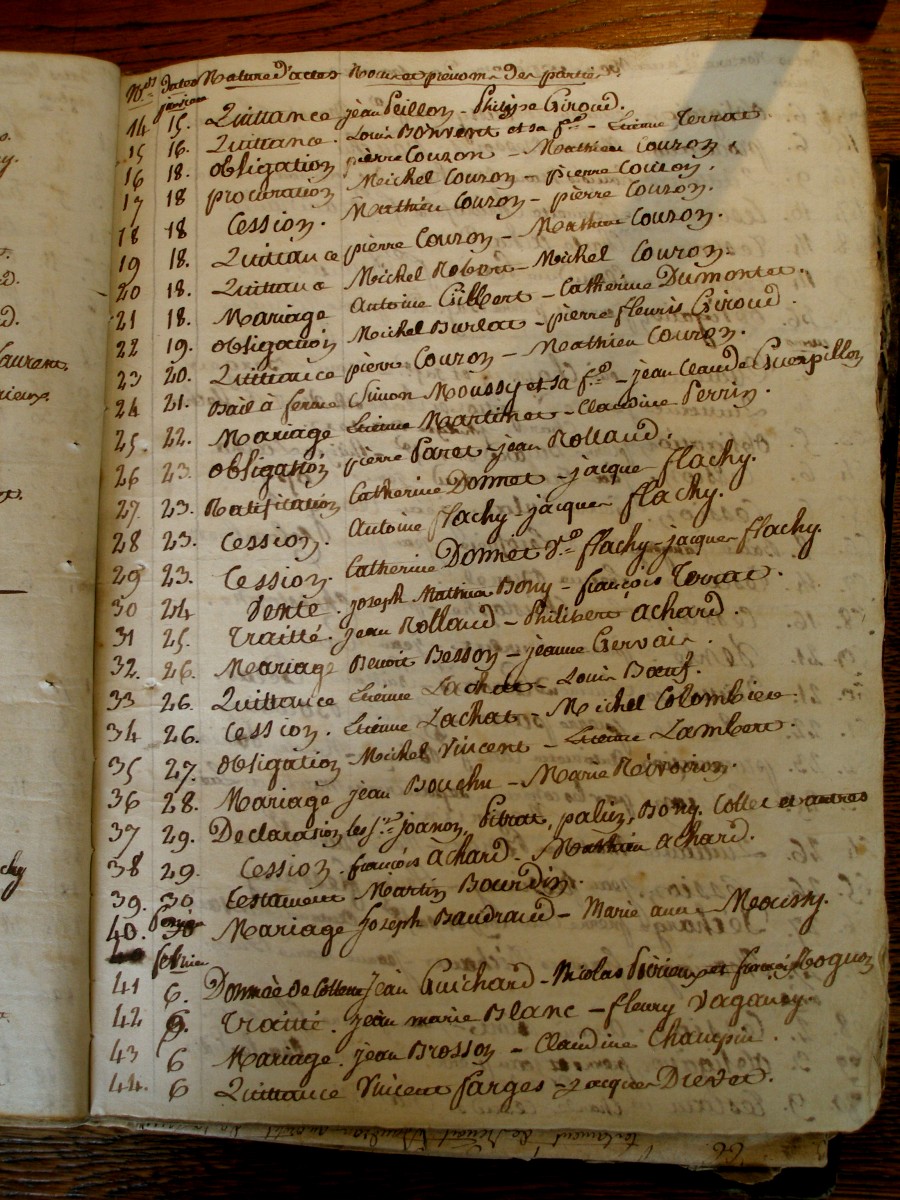 Nos Dates Nature d'actes Noms et prénoms des parties
janvier
14 15. Quittance jean Peillon - Philippe Giroud.
15 16. Quittance. Louis Bonvent et sa fe - Etienne Terrat
16 18. obligation pierre Couzon - Mathieu Couzon.
17 18 procuration Meichel Couzon - pierre Couzon.
18 18 Cession. Mathieu Couzon - pierre Couzon.
19 18. Quittance pierre Couzon - Mathieu Couzon.
20 18. Quittance Michel Robert - Michel Couzon.
21 18. Mariage Antoine Gilbert - Catherine Dumontet.
22 19. obligation Meichel Burlat - pierre fleuris Giroud.
23 20. Quittance pierre Couzon - Mathieu Couzon.
24 21. Bail à ferme Simon Moussy et sa fe - jean Claude Guerpillon
25. 22. Mariage Etienne Martinet - Claudine Perrin.
26 23. obligation pierre Paret - jean Rolland.
27 23. Ratification Catherine Donnet - jacque flachy.
28 23. Cession. Antoine flachy - jacques flachy.
29 23. Cession. Catherine Donnet Ve flachy - jacques flachy.
30 24 Vente. joseph Mathieu Bony - françois Terrat.
31 25. Traitté. jean Rolland - Philibert achard.
32. 26. Meariage Benoit Besson - jeanne Gervais.
33 26. Quittance Etienne Lachat - Louis Bœuf.
34 26. Cession. Etienne Lachat - Michel Colombier.
35 27. obligation - Michel Vincent - Etienne Lambert.
36 28. Mariage jean Bouchu - Marie Révoiron.
37 29. Declarasion les Srs joanon, Pitrat, paliz, Bony. Collet et autres
38 29. Cession. françois achard - Mathieu achard.
39. 30 testament Martin Bourdin.
40. 30 Mariage Joseph Baudrand - Marie anne Meoussy.
février
41 6. Donnèe de Collecte jean Guichard - Nicolas et françois Rognon
42 6. Traitté. jean marie Blanc - fleury Vaganey.
43 6 Mariage. jean Brosson - Claudine Chaupin.
44. 6 Quittance Vincent farges - jacques Drevet.